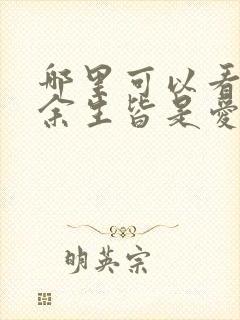 哪里可以看
余生皆是爱
明英宗